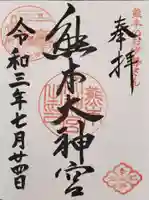 奉拝
熊本大神宮
令和三年七月廿四日